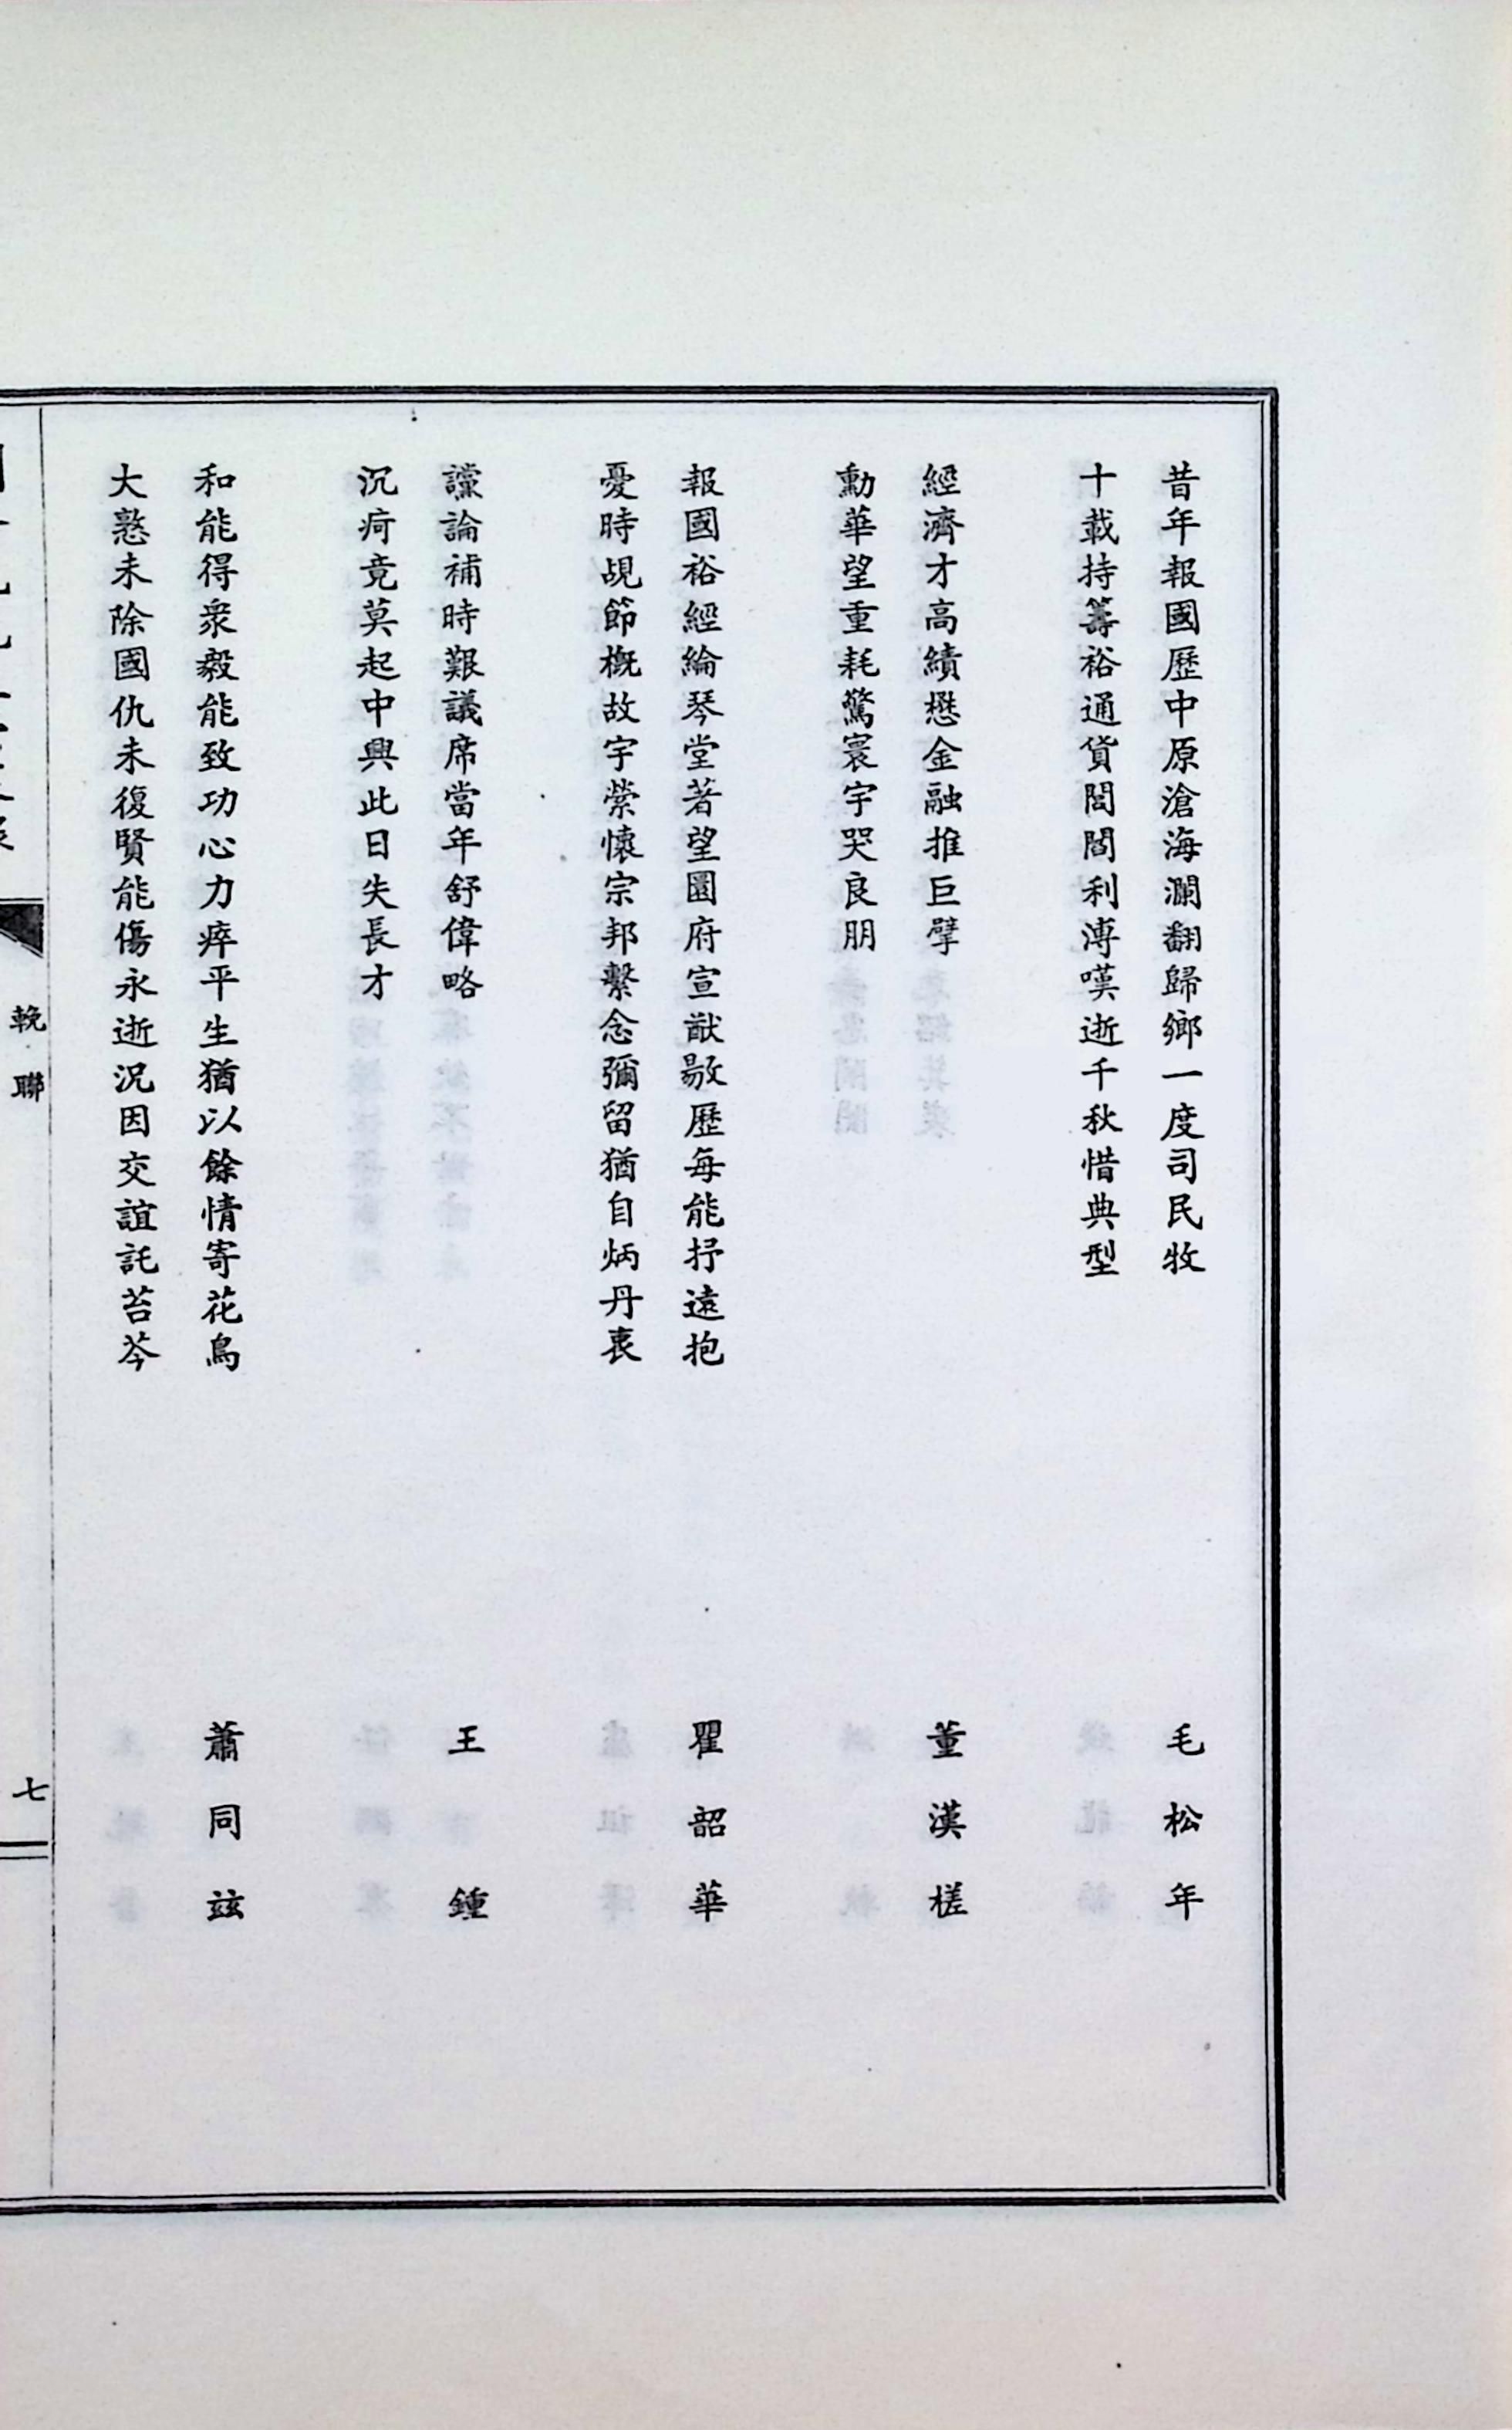 昔年報國歷中原滄海瀾翻歸鄉一度司民牧
毛松年
十載持籌裕通貨閭閻利溥嘆逝千秋惜典型
經濟才高績懋金融推巨擘
董漢槎
勳華望重耗驚寰宇哭良朋
報國裕經綸琴堂著望圜府宣猷敭歷每能抒遠抱
瞿韶華
憂時覘節概故宇縈懷宗邦繫念彌留猶自炳丹衷
讜論補時艱議席當年舒偉略
王鍾
沉疴竟莫起中興此日失長才
和能得衆毅能致功心力瘁平生猶以餘情寄花鳥
蕭同茲
大憝未除國仇未復賢能傷永逝況因交誼託苔芩
輓聯
七